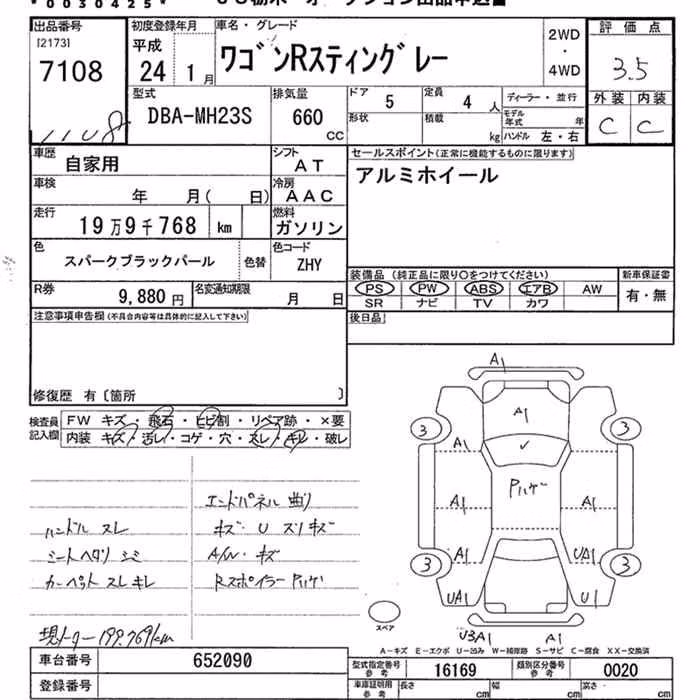 *00030425*
出品番号
[2173]
7108
1108
初度登録年月
平成
24年1月
車名・グレード
ワゴンRスティングレー
2WD
・
4WD
評価点
3.5
外装 内装
C C
型式
DBA-MH23S
排気量
660
CC
ドア
5
定員
4人
形状
積載
kg
ディーラー・並行
モデル年式 年
ハンドル 左・右
車歴
自家用
シフト
AT
セールスポイント(正常に機能するものに限ります)
アルミホイール
車検
年 月( 日)
冷房
AAC
走行
19万9千768 km
燃料
ガソリン
色
スパークブラックパール
色替
色コード
ZHY
R券
9,880円
名変通知期限
月 日
装備品(純正品に限り○をつけてください)
PS PW ABS エアB AW
SR ナビ TV カワ
新車保証書
有・無
後日品
注意事項申告欄(不具合内容等は具体的に記入して下さい)
修復歴 有〔箇所 〕
検査員記入欄
FW キズ・飛石・ヒビ割・リペア跡・×要
内装 キズ・汚レ・コゲ・穴・スレ・キレ・破レ
エンドパネル 曲り
ハンドル スレ
キズ U スリキズ
シートヘタリ シミ
A/W・キズ
カーペット スレ キレ
Rスポイラー Pハゲ
現メーター 199,769km
A1
A1
3
3
A1
✓
Pハゲ
A1
A1
A1
UA1
3
3
UA1
U1
スペア
U3A1
A1
A-キズ E-エクボ U-凹み W-補修跡 S-サビ C-腐食 XX-交換済
車台番号
652090
型式指定番号
参考
16169
類別区分番号
参考
0020
登録番号
車庫証明用
参考
長さ cm
幅 cm
高さ cm